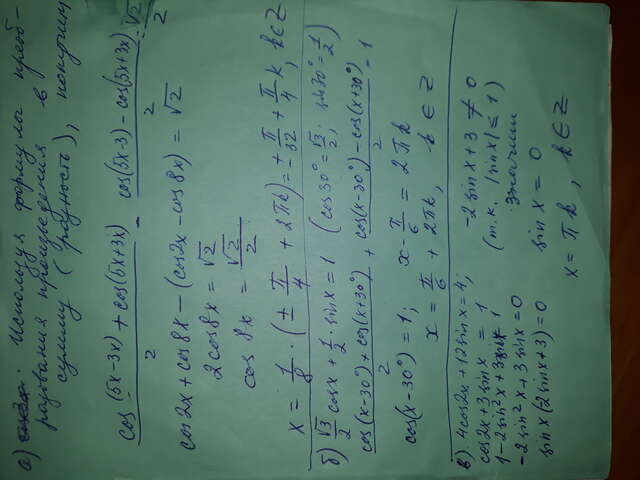 а) Используя формулы преоб-
разования произведения в
сумму (разность), получим
cos(5x-3x) + cos(5x+3x) / 2 - cos(5x-3) - cos(5x+3x) / 2 = √2/2
cos2x + cos8x - (cos2x - cos8x) = √2
2cos8x = √2
cos 8x = √2/2
x = 1/8 · (± π/4 + 2πk) = ± π/32 + π/4 k, k∈Z
б) √3/2 cosx + 1/2 · sinx = 1 (cos30° = √3/2; sin30° = 1/2)
cos(x-30°) + cos(x+30°) / 2 + cos(x-30°) - cos(x+30°) / 2 = 1
cos(x-30°) = 1; x - π/6 = 2πk
x = π/6 + 2πk, k∈Z
в) 4cos2x + 12sinx = 4; -2sinx + 3 ≠ 0
cos2x + 3sinx = 1 (т.к. |sinx| ≤ 1)
1 - 2sin²x + 3sinx = 1 значит
-2sin²x + 3sinx = 0 sinx = 0
sinx(-2sinx+3) = 0 x = πk, k∈Z